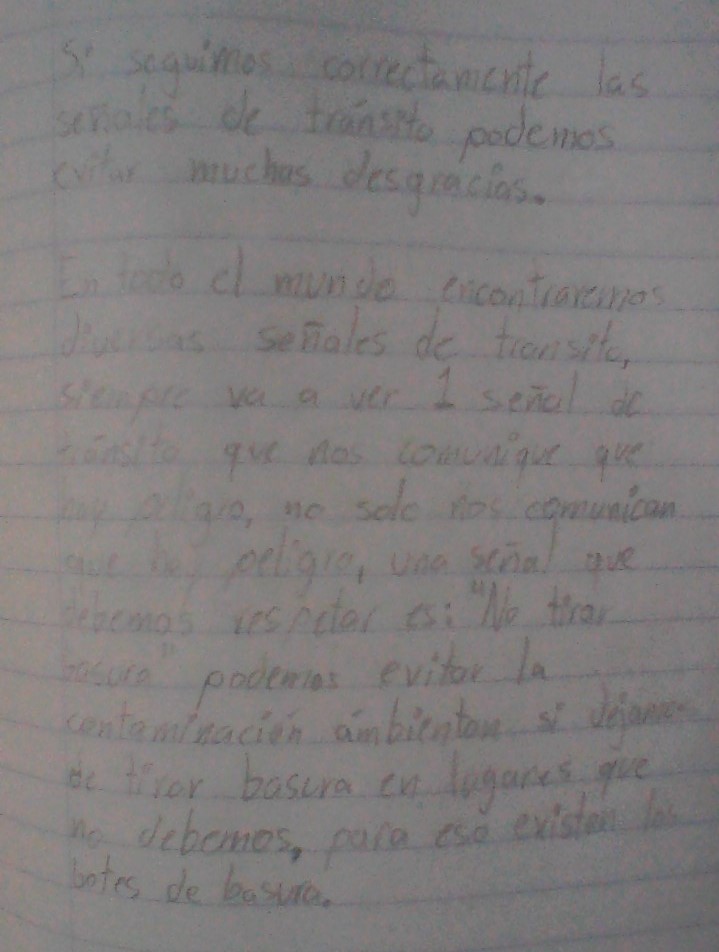 Si seguimos correctamente las
señales de tránsito podemos
evitar muchas desgracias.
En todo el mundo encontraremos
diversas señales de transito,
siempre va a ver 1 señal de
tránsito que nos comunique que
hay peligro, no solo nos comunican
que hay peligro, una señal que
debemos respetar es: "No tirar
basura" podemos evitar la
contaminación ámbientan si dejamos
de tirar basura en lugares que
no debemos, para eso existen los
botes de basura.